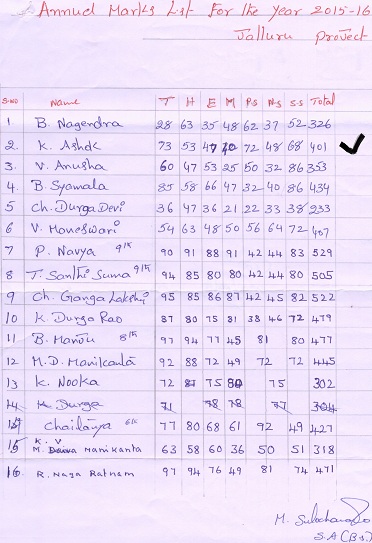 Annual Marks List For the Year 2015-16
Jalluru project
S.NO Name T H E M P.S N.S S.S Total
1 B. Nagendra 28 63 35 48 62 37 52 326
2. K. Ashok 73 53 47 40 72 48 68 401
3. V. Anusha 60 47 53 25 50 32 86 353
4. B Syamala 85 58 66 47 32 40 86 434
5 Ch. Durga Devi 36 47 36 21 22 33 38 233
6 V. Maneswari 54 63 48 50 56 64 72 407
7 P. Navya 90 91 88 91 42 44 83 529
8 T. Santhi Suma 94 85 80 80 42 44 80 505
9 Ch. Ganga Lakshmi 95 85 86 87 42 45 82 522
10 K. Durga Rao 87 80 75 81 38 46 72 479
11 B. 97 94 77 45 81 80 477
12 M.D. Manikanta 92 88 72 49 72 72 445
13 K. Nooka 72 75 80 75 302
14 K. Durga 71 78 78 77 304
Chaitanya 77 80 68 61 92 49 427
K. V
15 M. Manikanta 63 58 60 36 50 51 318
16 R. Naga Ratnam 97 94 76 49 81 74 471
M.
S.A (B.S.)